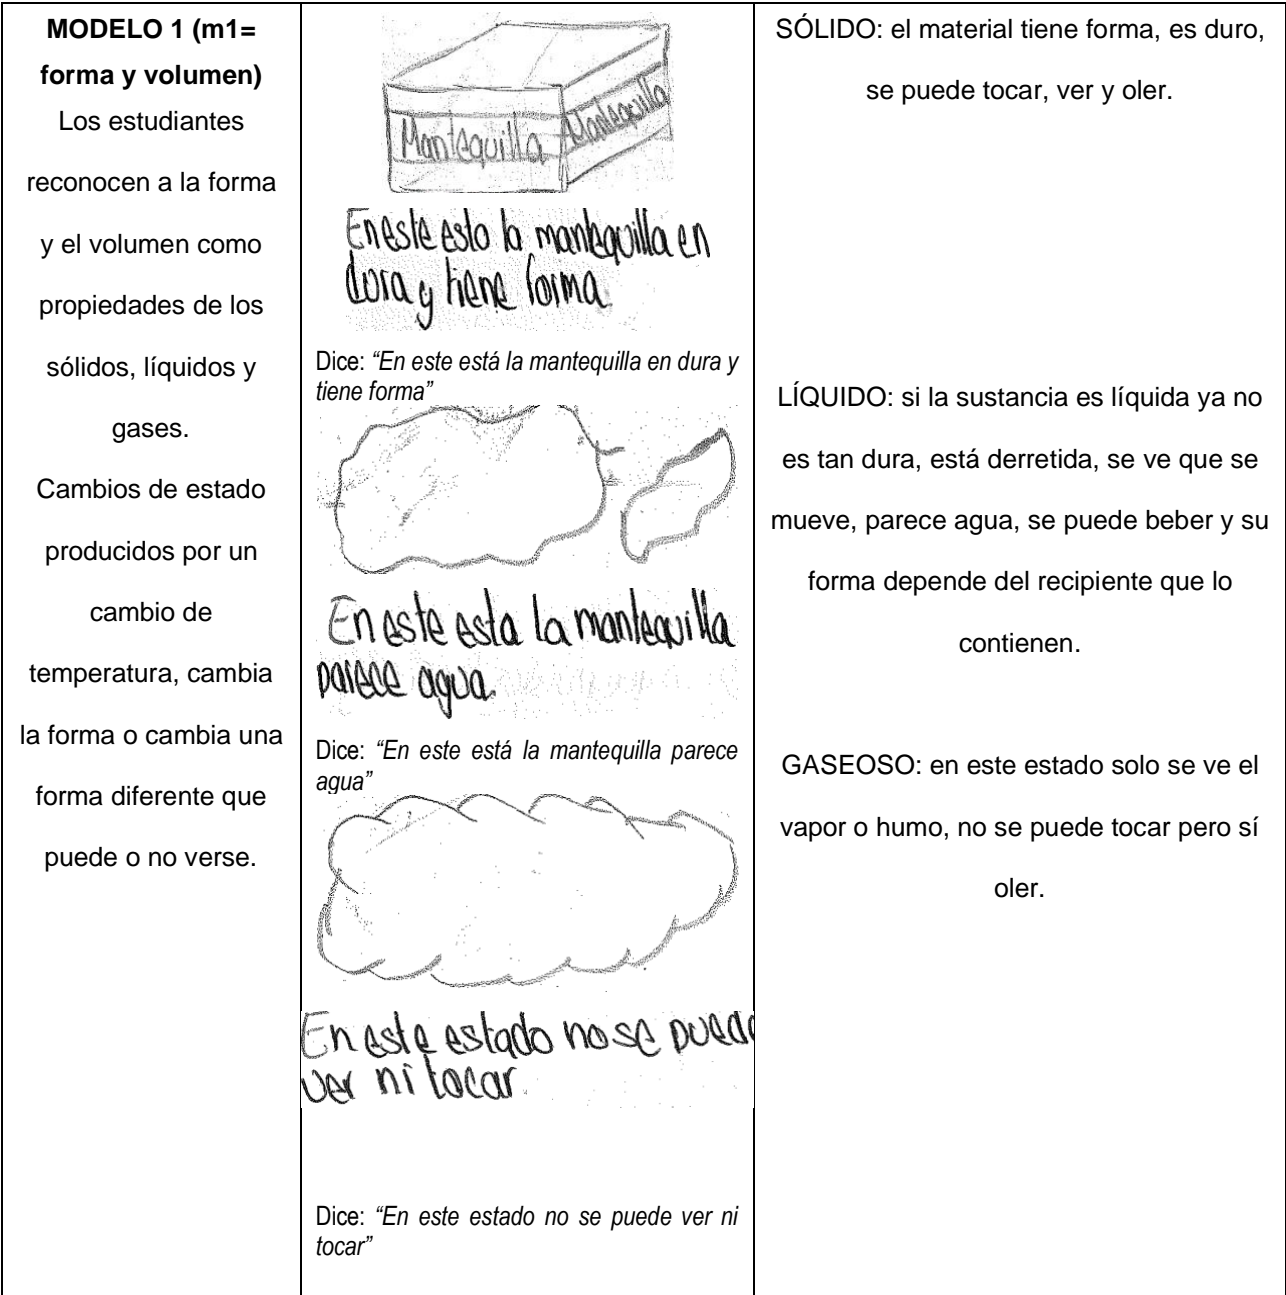 MODELO 1 (m1=
forma y volumen)
Los estudiantes
reconocen a la forma
y el volumen como
propiedades de los
sólidos, líquidos y
gases.
Cambios de estado
producidos por un
cambio de
temperatura, cambia
la forma o cambia una
forma diferente que
puede o no verse.
Mantequilla Mantequilla
En este esto la mantequilla en
dura y tiene forma
Dice: “En este está la mantequilla en dura y
tiene forma”
En este esta la mantequilla
parece agua.
Dice: “En este está la mantequilla parece
agua”
En este estado no se puede
ver ni tocar
Dice: “En este estado no se puede ver ni
tocar”
SÓLIDO: el material tiene forma, es duro,
se puede tocar, ver y oler.
LÍQUIDO: si la sustancia es líquida ya no
es tan dura, está derretida, se ve que se
mueve, parece agua, se puede beber y su
forma depende del recipiente que lo
contienen.
GASEOSO: en este estado solo se ve el
vapor o humo, no se puede tocar pero sí
oler.